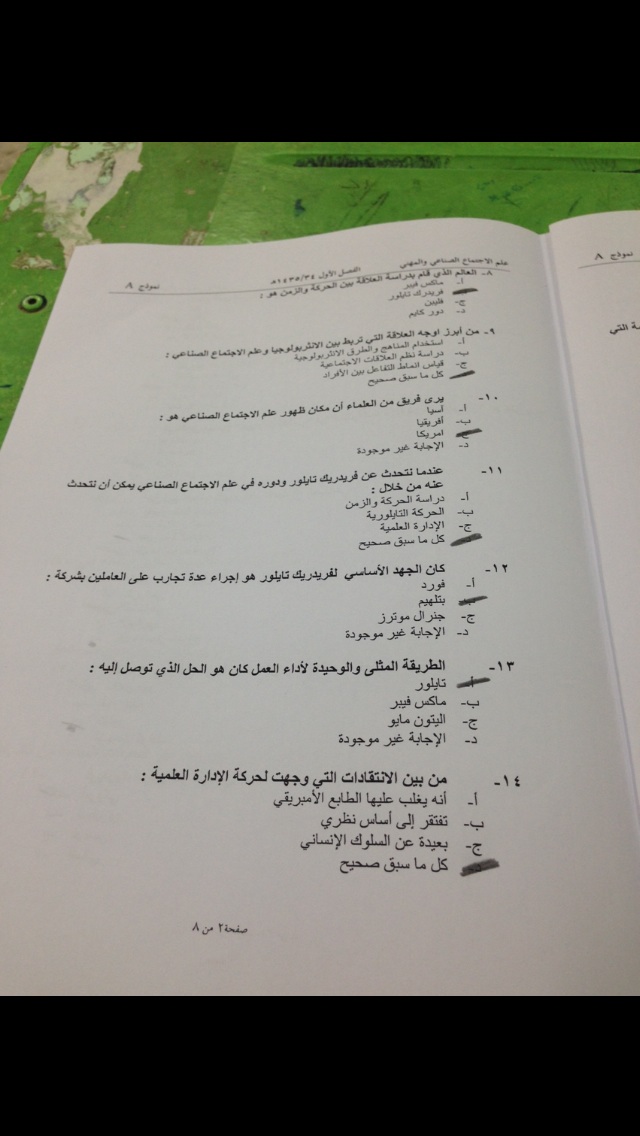 علم الاجتماع الصناعي والمهني الفصل الأول ١٤٣٥/٣٤هـ نموذج ٨
٨- العالم الذي قام بدراسة العلاقة بين الحركة والزمن هو :
أ- ماكس فيبر
فريدرك تايلور
ج- فلبن
د- دور كايم
٩- من أبرز اوجه العلاقة التي تربط بين الانثربولوجيا وعلم الاجتماع الصناعي :
أ- استخدام المناهج والطرق الانثربولوجية
ب- دراسة نظم العلاقات الاجتماعية
ج- قياس انماط التفاعل بين الأفراد
كل ما سبق صحيح
١٠- يرى فريق من العلماء أن مكان ظهور علم الاجتماع الصناعي هو :
أ- آسيا
ب- أفريقيا
ج- امريكا
د- الإجابة غير موجودة
١١- عندما نتحدث عن فريدريك تايلور ودوره في علم الاجتماع الصناعي يمكن أن نتحدث
عنه من خلال :
أ- دراسة الحركة والزمن
ب- الحركة التايلورية
ج- الإدارة العلمية
كل ما سبق صحيح
١٢- كان الجهد الأساسي لفريدريك تايلور هو إجراء عدة تجارب على العاملين بشركة :
أ- فورد
ب- بتلهيم
ج- جنرال موترز
د- الإجابة غير موجودة
١٣- الطريقة المثلى والوحيدة لأداء العمل كان هو الحل الذي توصل إليه :
أ- تايلور
ب- ماكس فيبر
ج- اليتون مايو
د- الإجابة غير موجودة
١٤- من بين الانتقادات التي وجهت لحركة الإدارة العلمية :
أ- أنه يغلب عليها الطابع الأمبريقي
ب- تفتقر إلى أساس نظري
ج- بعيدة عن السلوك الإنساني
د- كل ما سبق صحيح
صفحة٢ من ٨
نموذج ٨
التي